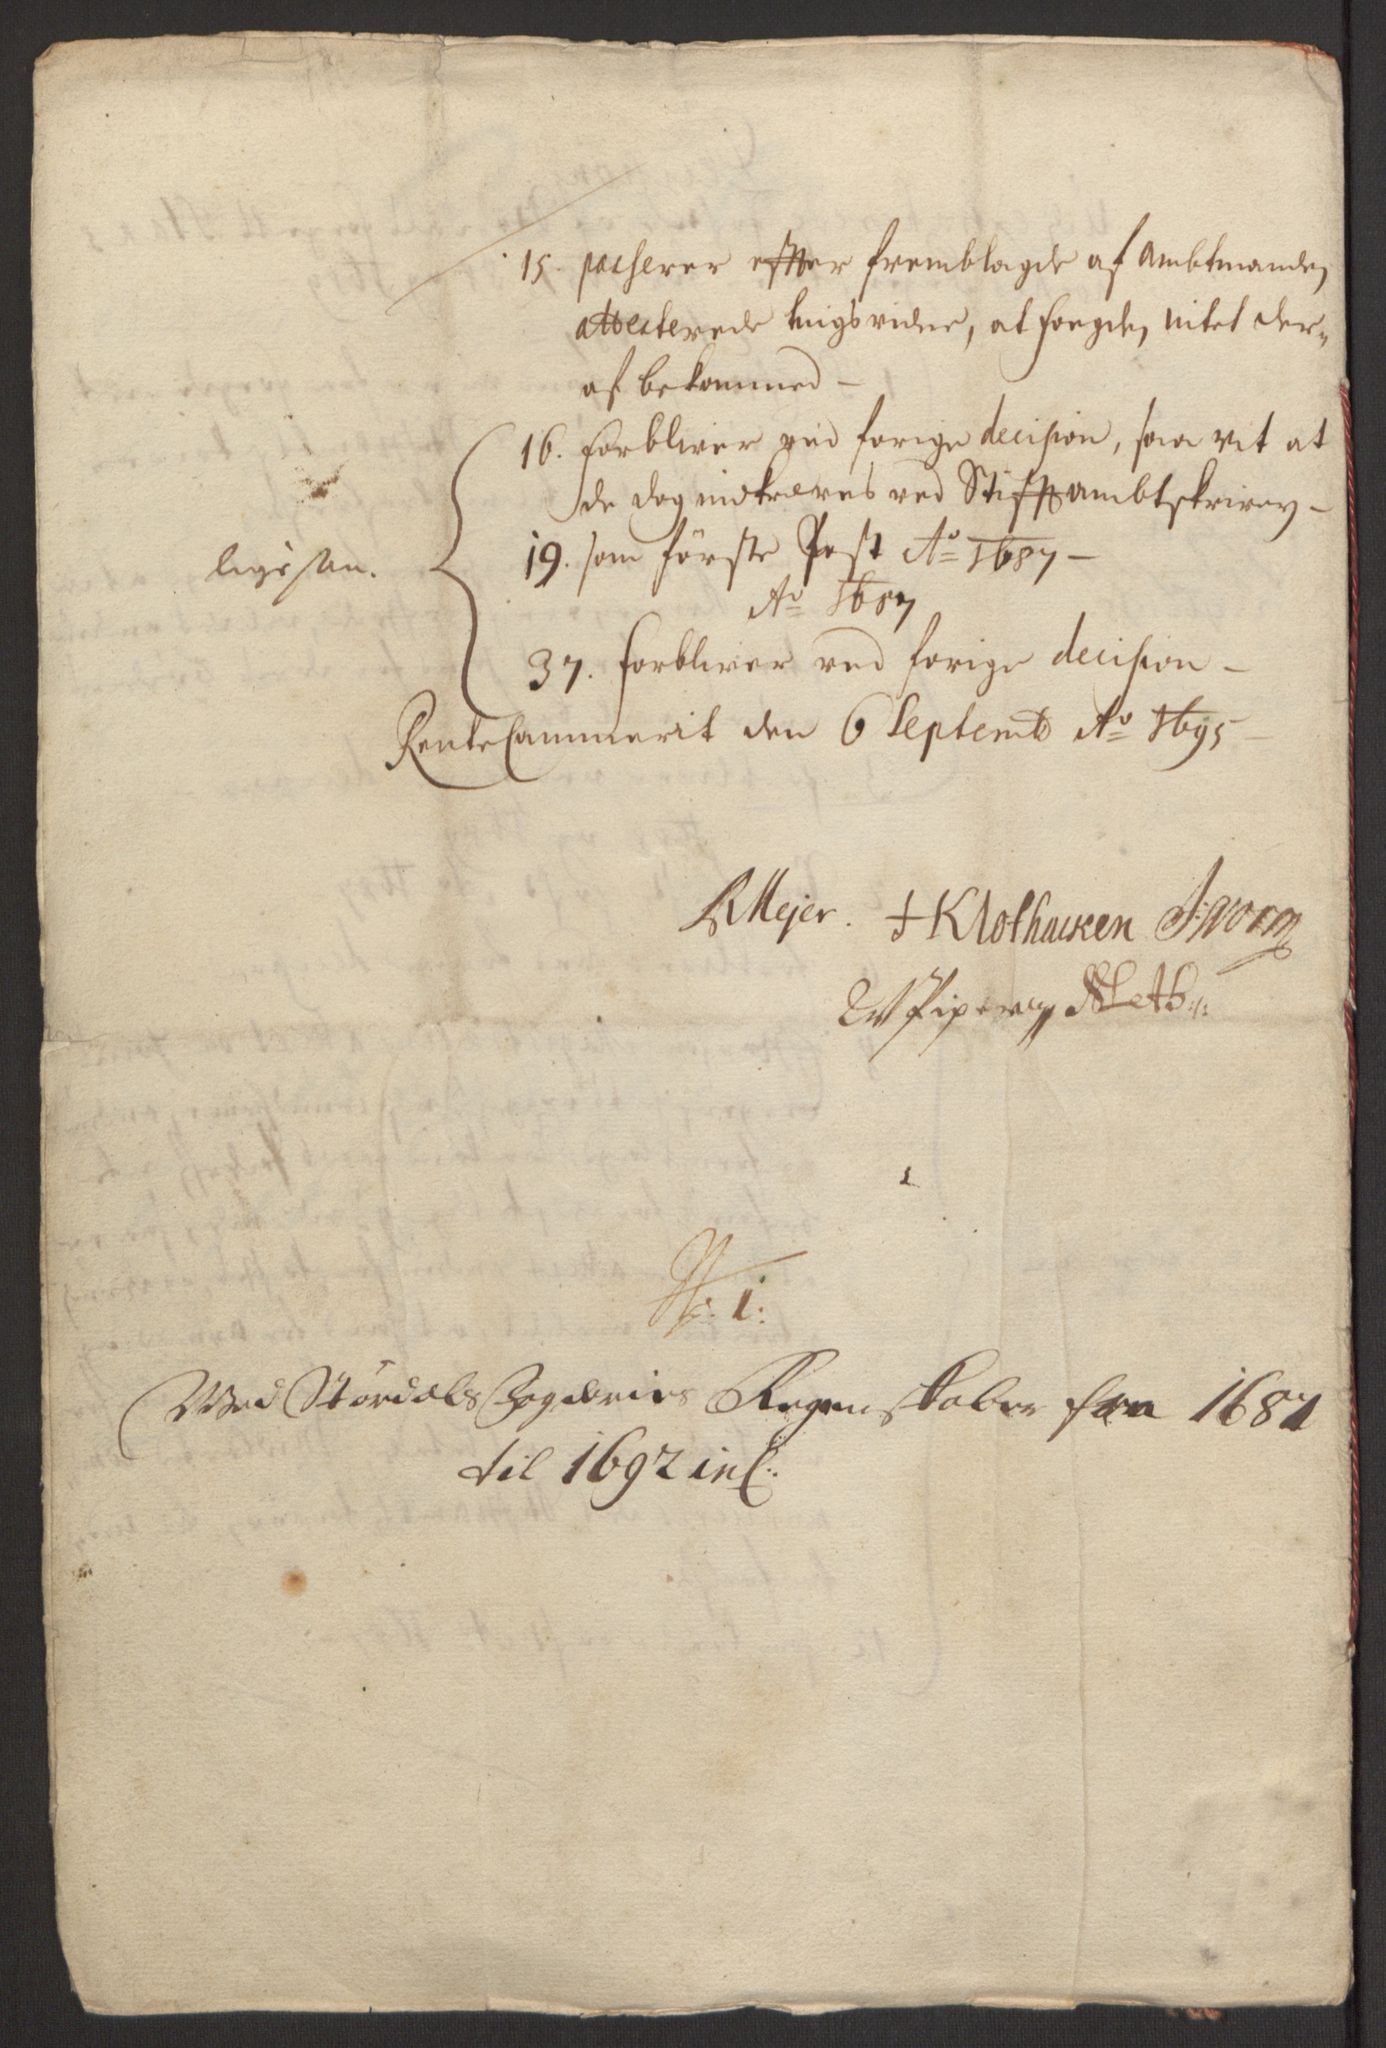 15. passerer effter fremblagde af Ambtmanden
attesterede tingsvidne, at fogden intet der-
af bekommed –
16. forbliver ved forige decision, saa vit at
de dog indkræves ved Stifftambtskriven –
ligesaa.
19. som förste Post Ao 1687 –
Ao 1687
37. forbliver ved forige decision –
RenteCammerit den 6 Septemb Ao 1695 –
Mejer. Klothacken Worm
W Piper
No: 1:
Ved Stördals Fogderies Regenskaber fra 1687
til 1692 incl: